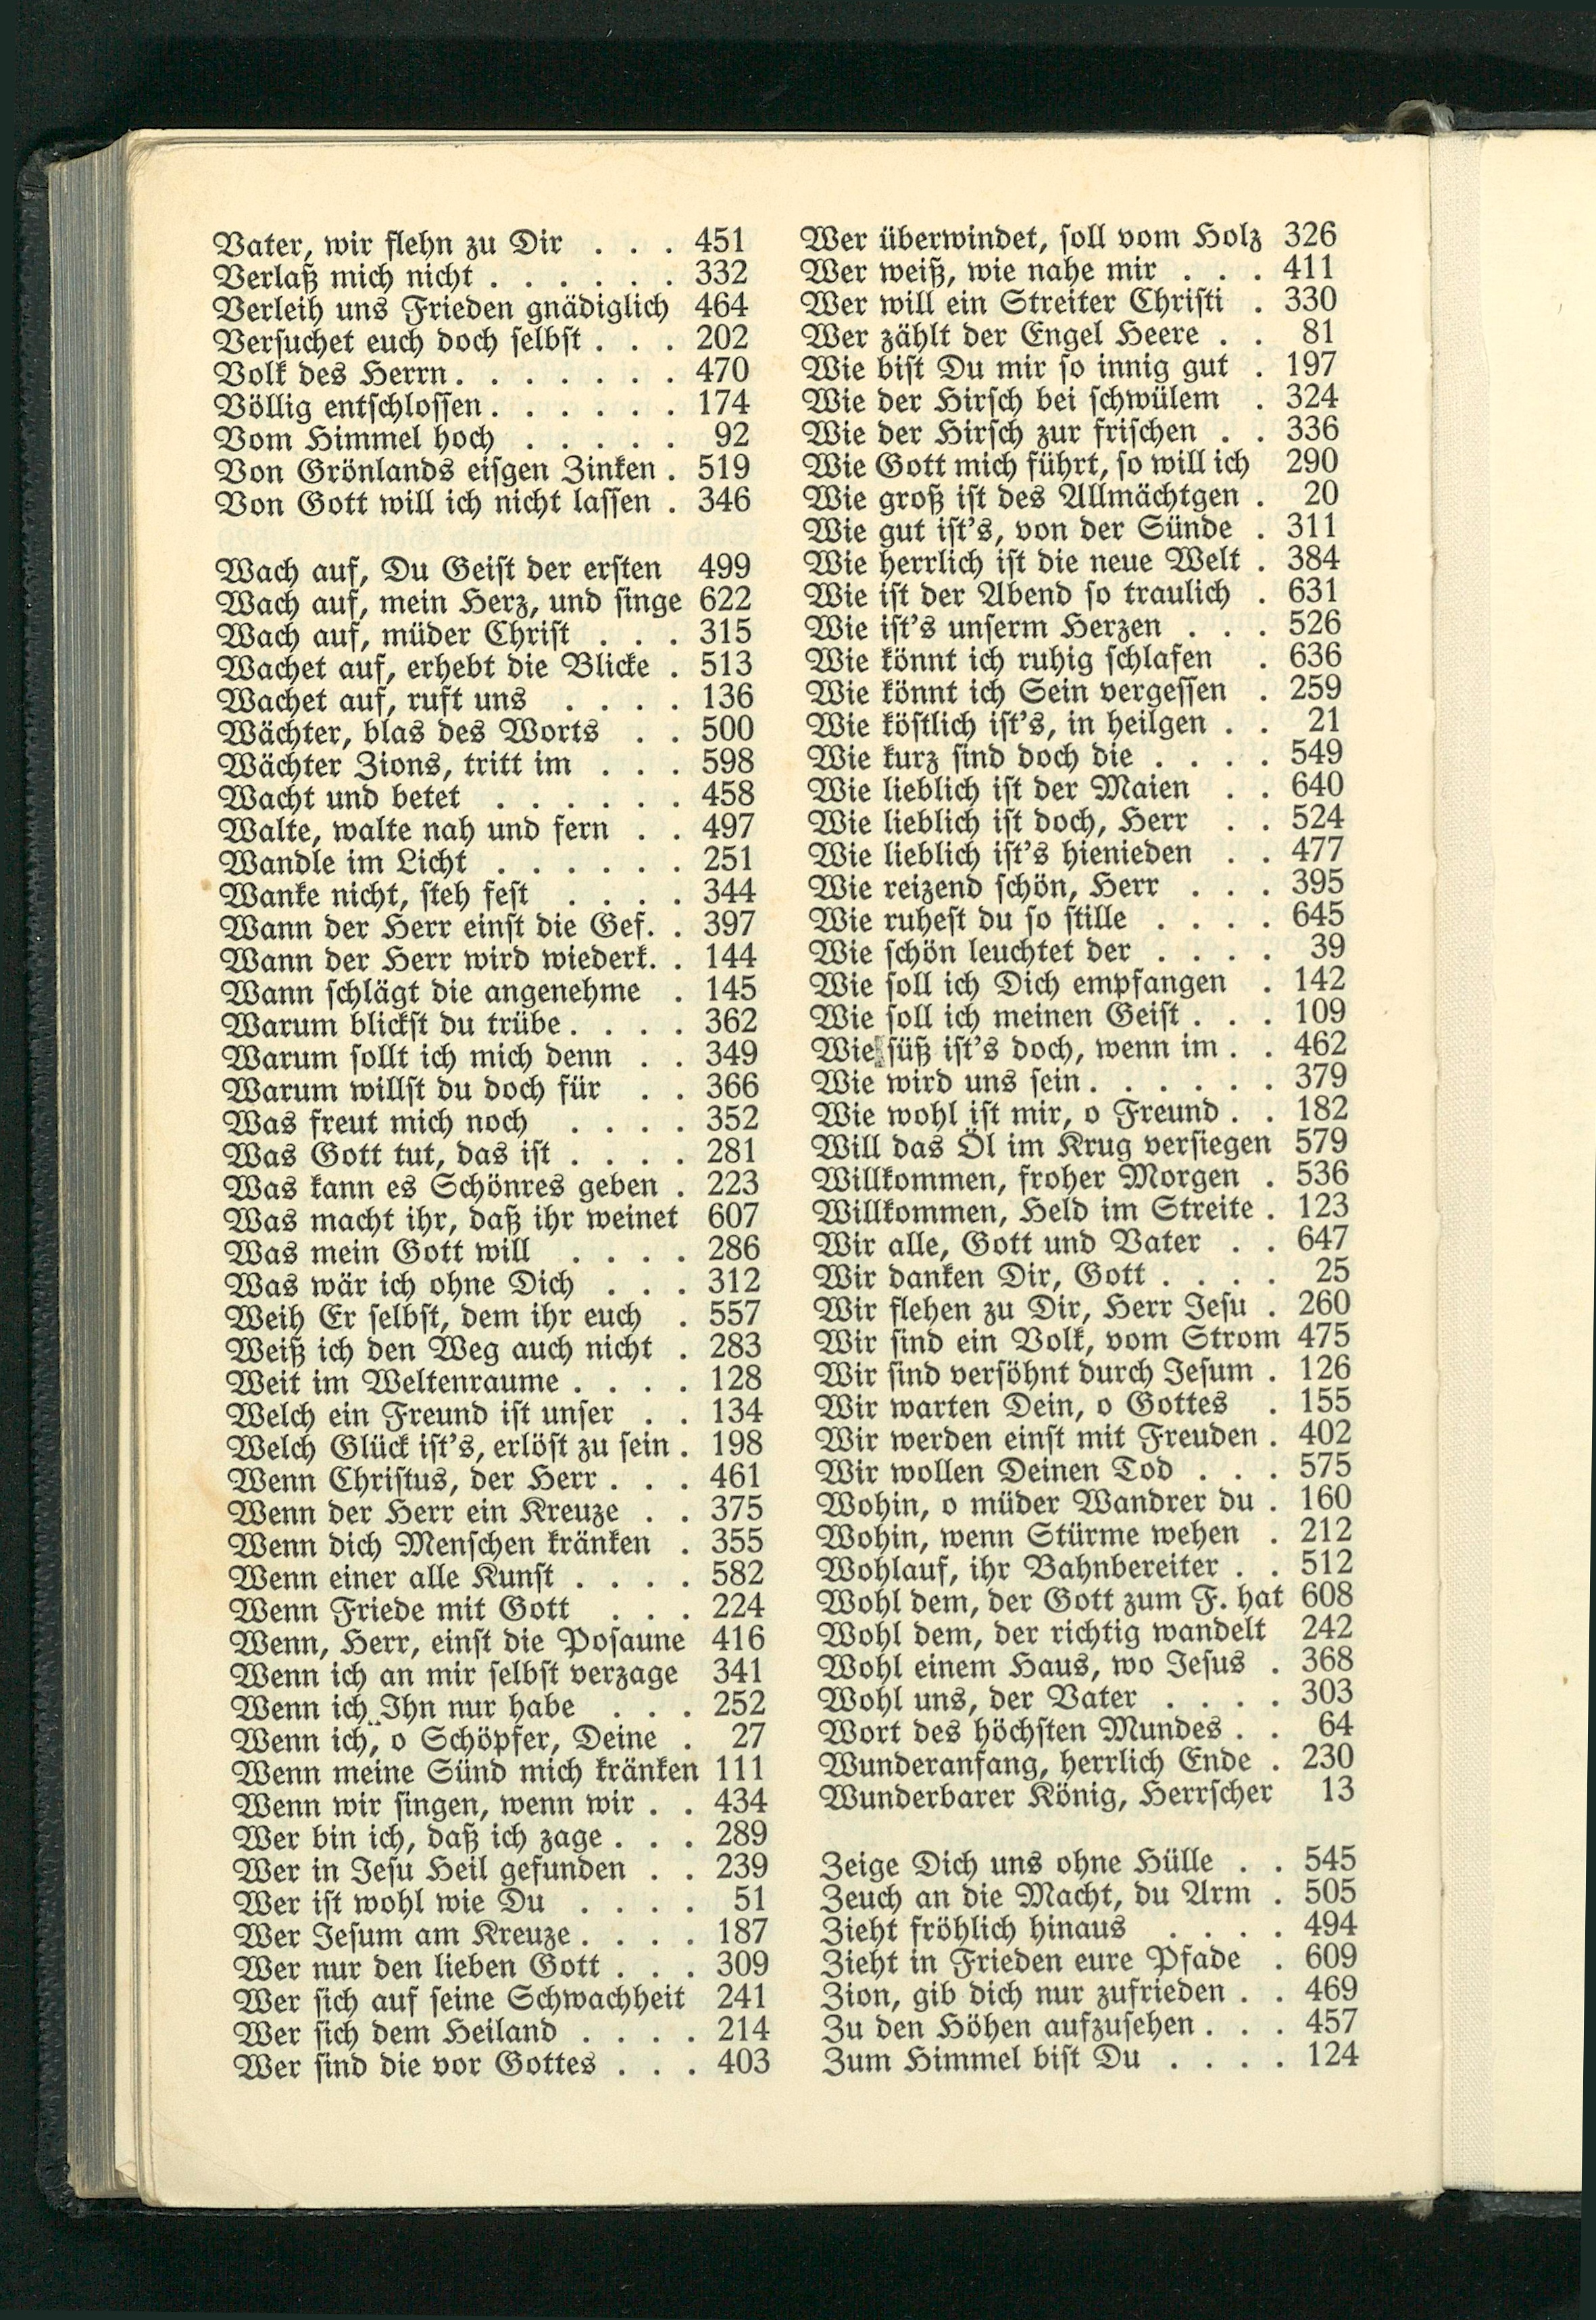 Vater, wir flehn zu Dir . . . 451
Verlaß mich nicht . . . . . . 332
Verleih uns Frieden gnädiglich 464
Versuchet euch doch selbst . . . 202
Volk des Herrn . . . . . . . 470
Völlig entschlossen . . . . . . 174
Vom Himmel hoch . . . . . 92
Von Grönlands eisgen Zinken . 519
Von Gott will ich nicht lassen . 346
Wach auf, Du Geist der ersten 499
Wach auf, mein Herz, und singe 622
Wach auf, müder Christ . . . 315
Wachet auf, erhebt die Blicke . 513
Wachet auf, ruft uns . . . . 136
Wächter, blas des Worts . . 500
Wächter Zions, tritt im . . . 598
Wacht und betet . . . . . . 458
Walte, walte nah und fern . . 497
Wandle im Licht . . . . . . 251
Wanke nicht, steh fest . . . . 344
Wann der Herr einst die Gef. . 397
Wann der Herr wird wiederk. . 144
Wann schlägt die angenehme . 145
Warum blickst du trübe . . . . 362
Warum sollt ich mich denn . . 349
Warum willst du doch für . . 366
Was freut mich noch . . . . 352
Was Gott tut, das ist . . . . 281
Was kann es Schönres geben . 223
Was macht ihr, daß ihr weinet 607
Was mein Gott will . . . . 286
Was wär ich ohne Dich . . . 312
Weih Er selbst, dem ihr euch . 557
Weiß ich den Weg auch nicht . 283
Weit im Weltenraume . . . . 128
Welch ein Freund ist unser . . 134
Welch Glück ist's, erlöst zu sein . 198
Wenn Christus, der Herr . . . 461
Wenn der Herr ein Kreuze . . 375
Wenn dich Menschen kränken . 355
Wenn einer alle Kunst . . . . 582
Wenn Friede mit Gott . . . 224
Wenn, Herr, einst die Posaune 416
Wenn ich an mir selbst verzage 341
Wenn ich Ihn nur habe . . . 252
Wenn ich, o Schöpfer, Deine . 27
Wenn meine Sünd mich kränken 111
Wenn wir singen, wenn wir . . 434
Wer bin ich, daß ich zage . . . 289
Wer in Jesu Heil gefunden . . 239
Wer ist wohl wie Du . . . . 51
Wer Jesum am Kreuze . . . . 187
Wer nur den lieben Gott . . . 309
Wer sich auf seine Schwachheit 241
Wer sich dem Heiland . . . . 214
Wer sind die vor Gottes . . . 403
Wer überwindet, soll vom Holz 326
Wer weiß, wie nahe mir . . . 411
Wer will ein Streiter Christi . 330
Wer zählt der Engel Heere . . 81
Wie bist Du mir so innig gut . 197
Wie der Hirsch bei schwülem . 324
Wie der Hirsch zur frischen . . 336
Wie Gott mich führt, so will ich 290
Wie groß ist des Allmächtgen . 20
Wie gut ist's, von der Sünde . 311
Wie herrlich ist die neue Welt . 384
Wie ist der Abend so traulich . 631
Wie ist's unserm Herzen . . . 526
Wie könnt ich ruhig schlafen . 636
Wie könnt ich Sein vergessen . 259
Wie köstlich ist's, in heilgen . . 21
Wie kurz sind doch die . . . . 549
Wie lieblich ist der Maien . . 640
Wie lieblich ist doch, Herr . . 524
Wie lieblich ist's hienieden . . 477
Wie reizend schön, Herr . . . 395
Wie ruhest du so stille . . . . 645
Wie schön leuchtet der . . . . 39
Wie soll ich Dich empfangen . 142
Wie soll ich meinen Geist . . . 109
Wie süß ist's doch, wenn im . . 462
Wie wird uns sein . . . . . . 379
Wie wohl ist mir, o Freund . . 182
Will das Öl im Krug versiegen 579
Willkommen, froher Morgen . 536
Willkommen, Held im Streite . 123
Wir alle, Gott und Vater . . 647
Wir danken Dir, Gott . . . . 25
Wir flehen zu Dir, Herr Jesu . 260
Wir sind ein Volk, vom Strom 475
Wir sind versöhnt durch Jesum . 126
Wir warten Dein, o Gottes . 155
Wir werden einst mit Freuden . 402
Wir wollen Deinen Tod . . . 575
Wohin, o müder Wandrer du . 160
Wohin, wenn Stürme wehen . 212
Wohlauf, ihr Bahnbereiter . . 512
Wohl dem, der Gott zum F. hat 608
Wohl dem, der richtig wandelt 242
Wohl einem Haus, wo Jesus . 368
Wohl uns, der Vater . . . . 303
Wort des höchsten Mundes . . 64
Wunderanfang, herrlich Ende . 230
Wunderbarer König, Herrscher 13
Zeige Dich uns ohne Hülle . . 545
Zeuch an die Macht, du Arm . 505
Zieht fröhlich hinaus . . . . 494
Zieht in Frieden eure Pfade . 609
Zion, gib dich nur zufrieden . . 469
Zu den Höhen aufzusehen . . . 457
Zum Himmel bist Du . . . . 124